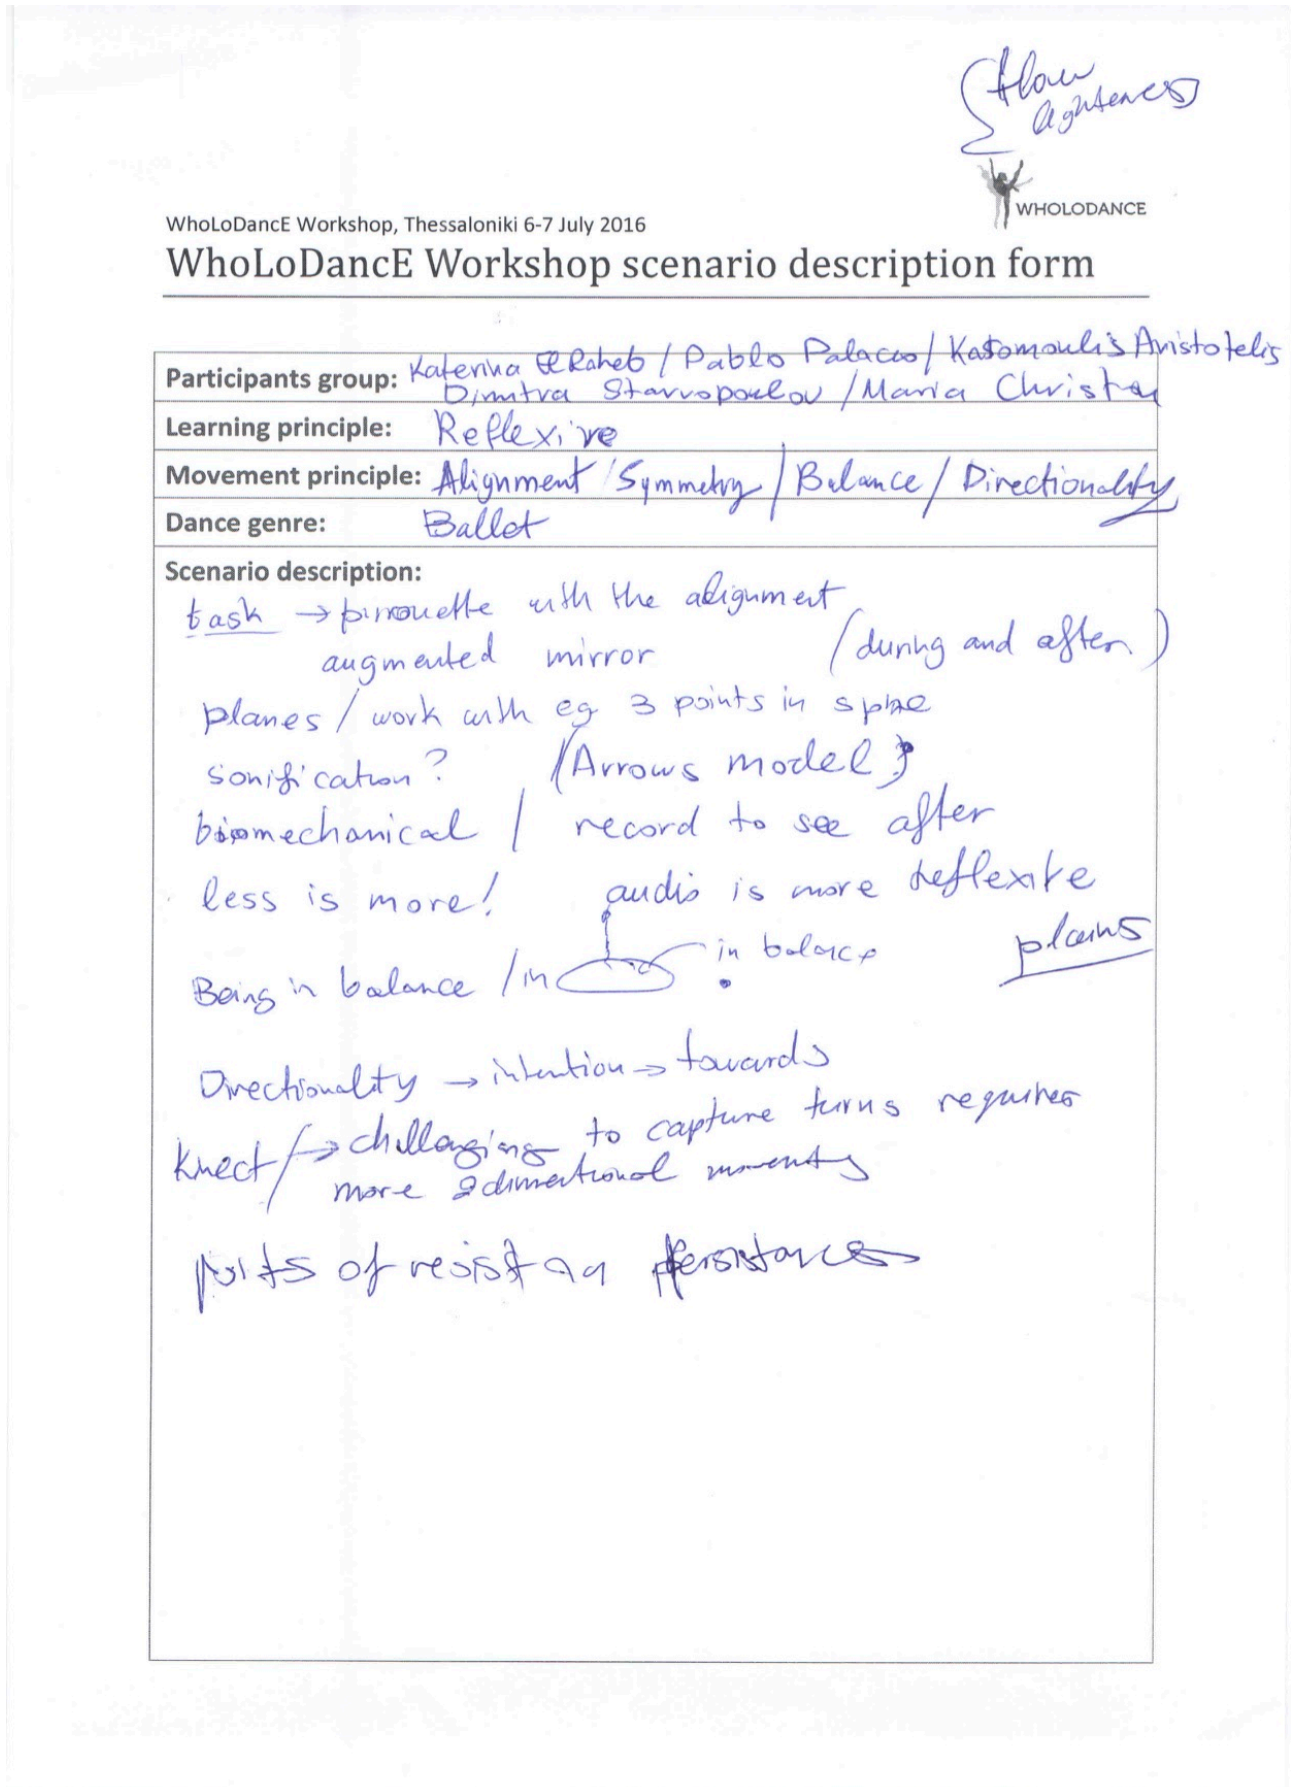 flow
WHOLODANCE
WhoLoDancE Workshop, Thessaloniki 6-7 July 2016
WhoLoDancE Workshop scenario description form
Participants group: Katerina El Raheb / Pablo Palacio / Katomoulis Aristotelis
Dimitra Stavropoulou / Maria Christou
Learning principle: Reflexive
Movement principle: Alignment / Symmetry / Balance / Directionality
Dance genre: Ballet
Scenario description:
task → pirrouette with the alignment
augmented mirror (during and after)
planes / work with eg 3 points in
sonification? (Arrows model)
biomechanical / record to see after
less is more! audio is more reflexive
Being in balance / in in balance plains
Directionality → intention → towards
Kinect / → challenging to capture turns requires
more 2dimentional
points of